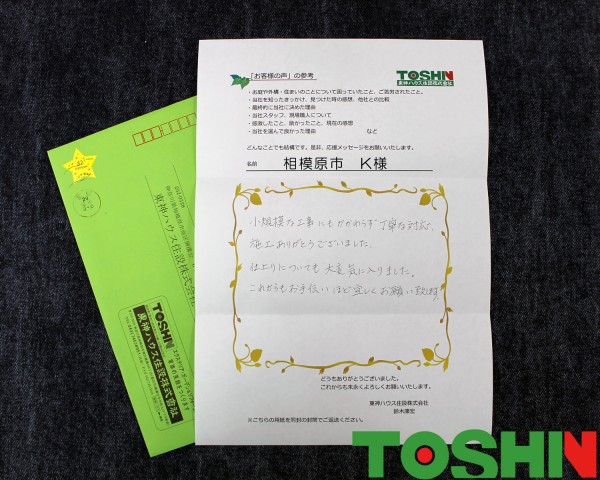 「お客様の声」の参考
TOSHIN
東神ハウス住設株式会社
・お庭や外構・住まいのことについて困っていたこと、ご苦労されたこと。
・当社を知ったきっかけ、見つけた時の感想、他社との比較
・最終的に当社に決めた理由
・当社スタッフ、現場職人について
・感激したこと、助かったこと、現在の感想
・当社を選んで良かった理由 など
どんなことでも結構です。是非、応援メッセージをお願いいたします。
名前 相模原市 K様
小規模な工事にもかかわらず丁寧な対応、
施工ありがとうございました。
仕上りについても大変気に入りました。
これからもお手伝いほど宜しくお願い致します。
どうもありがとうございました。
これからも末永くよろしくお願いいたします。
東神ハウス住設株式会社
鈴木康宏
※こちらの用紙を同封の封筒でご返送ください。
東神ハウス住設株式会社
TOSHIN
エクステリア・ガーデン&リフォーム
東神ハウス住設株式会社
TOSHIN